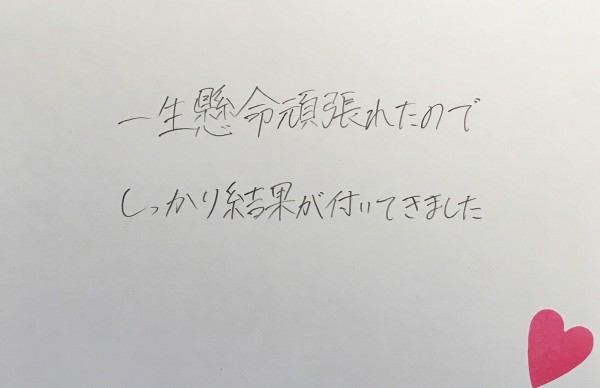 一生懸命頑張れたので
しっかり結果が付いてきました